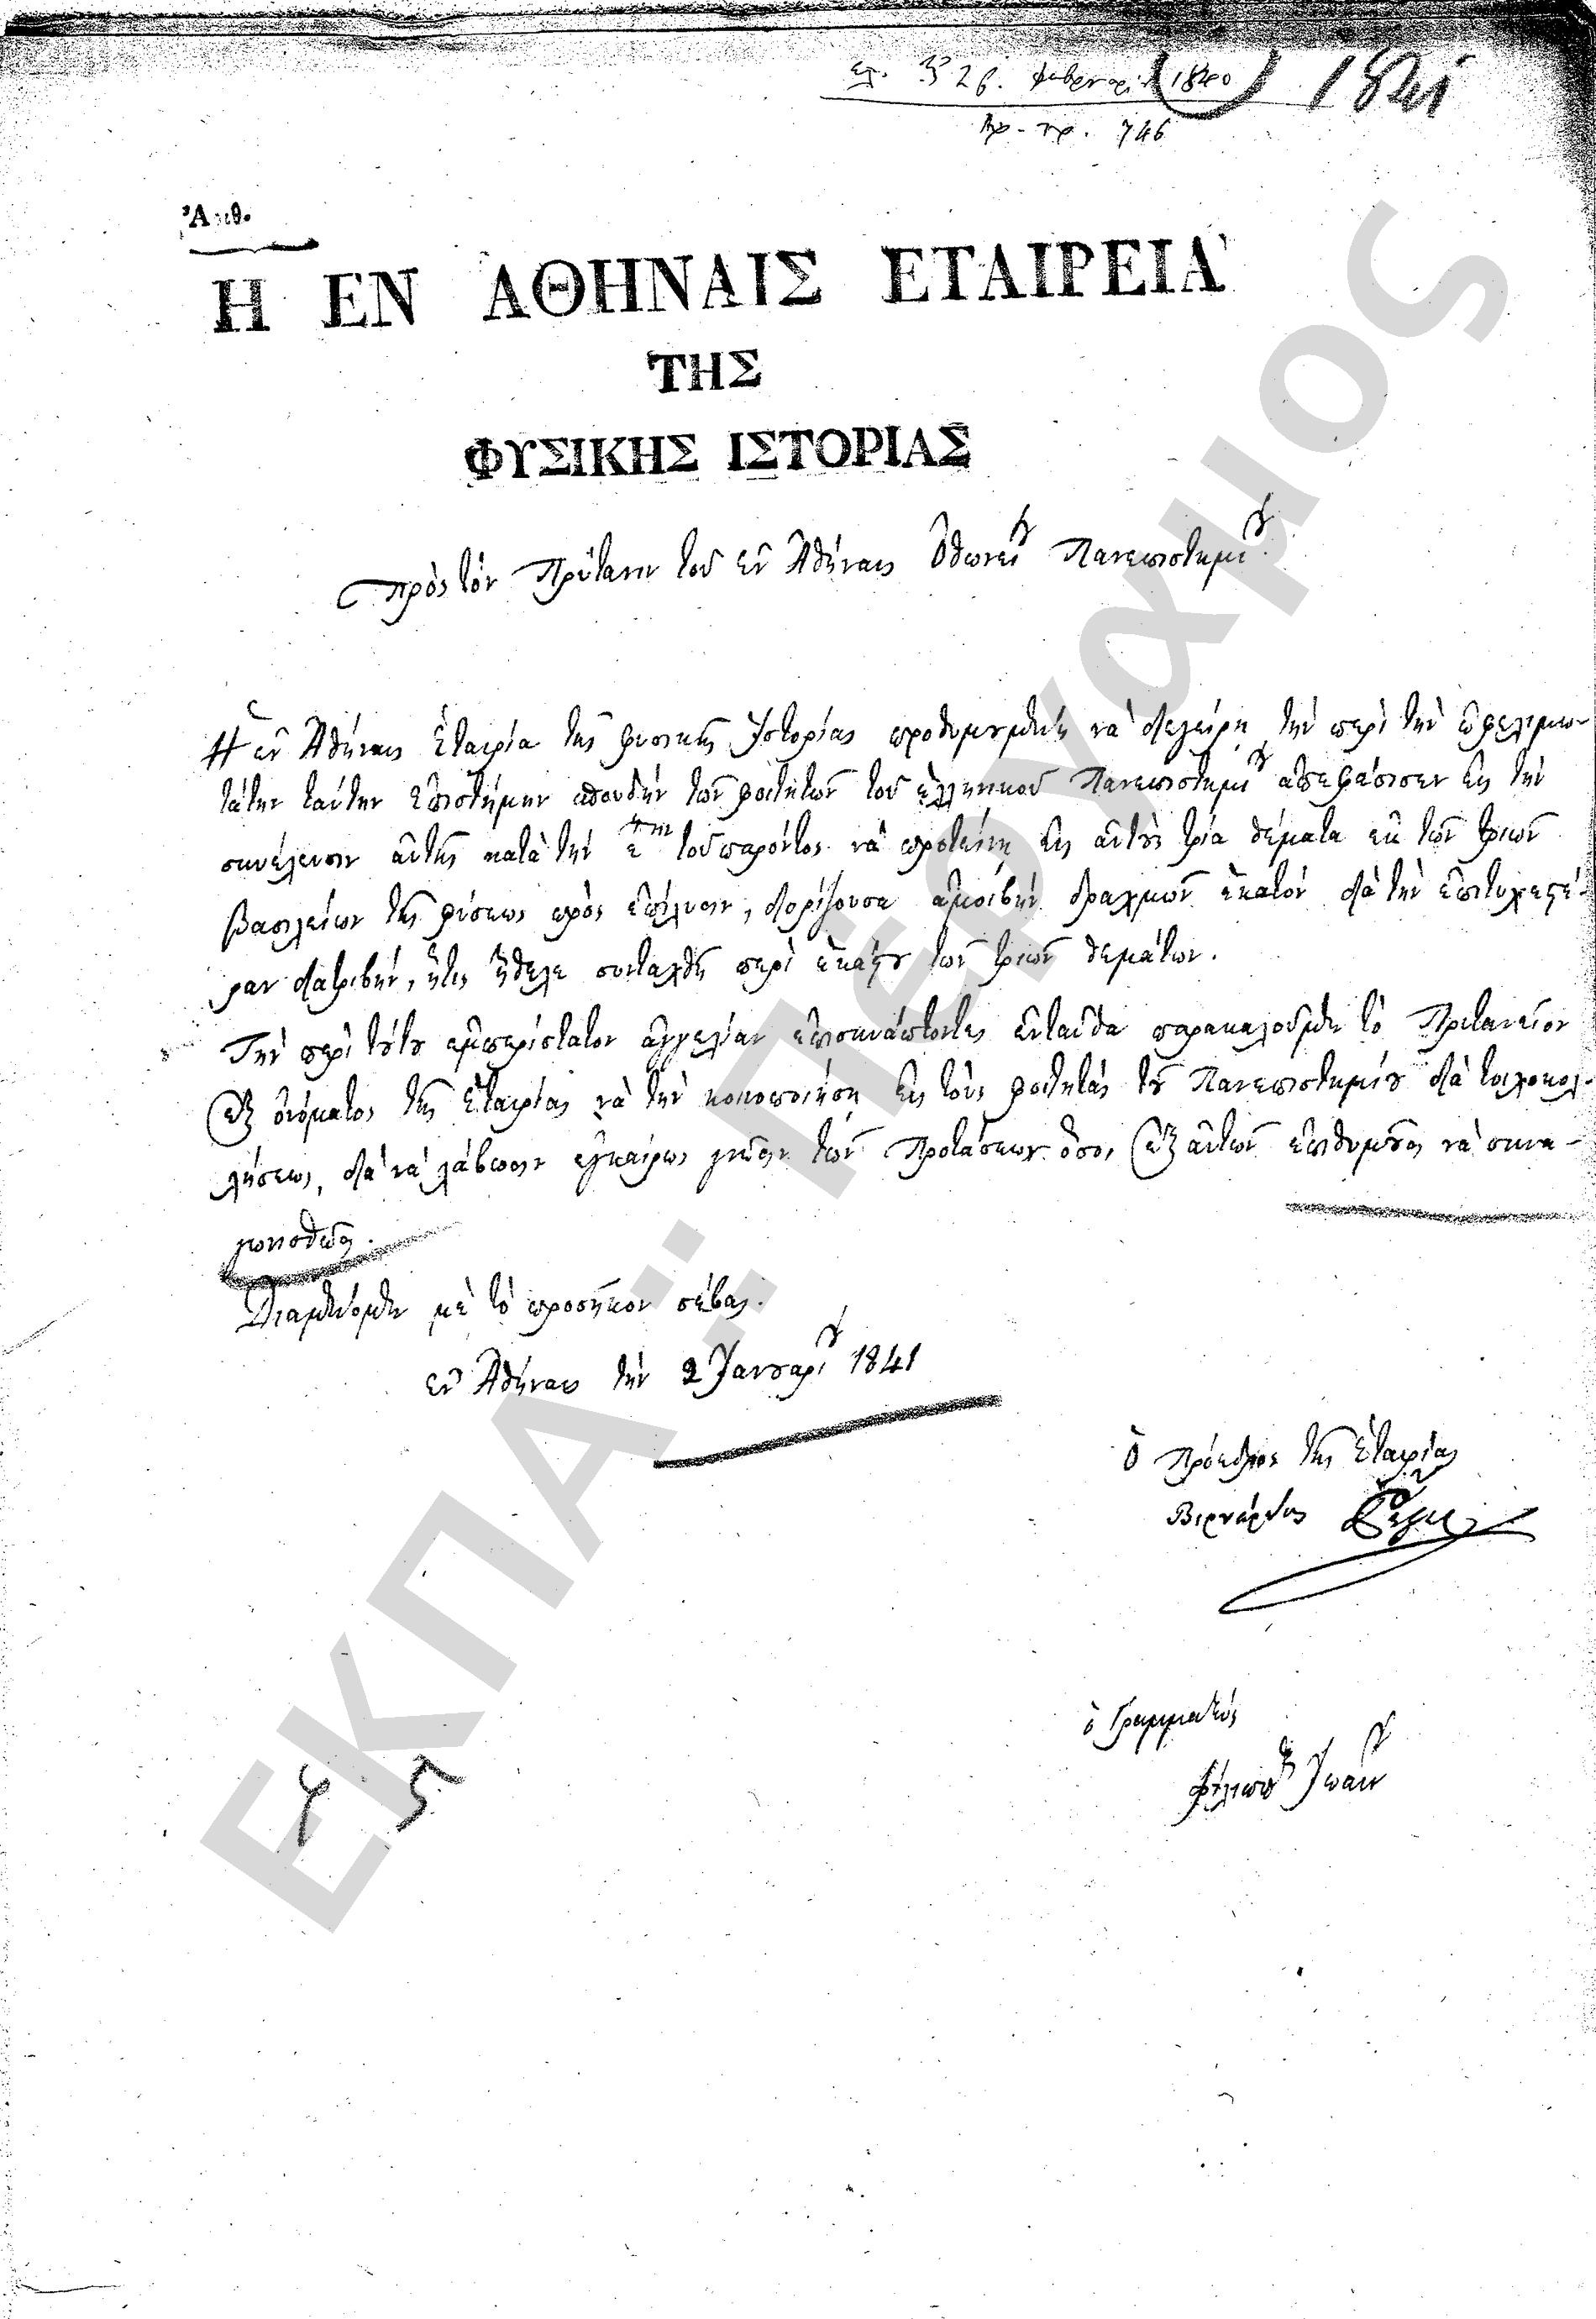 26. Φεβρουαρί 1840
1841
Ἀρ. πρ. 746
Ἀριθ.
Η ΕΝ ΑΘΗΝΑΙΣ ΕΤΑΙΡΕΙΑ
ΤΗΣ
ΦΥΣΙΚΗΣ ΙΣΤΟΡΙΑΣ
Πρὸς τὸν Πρύτανιν τοῦ ἐν Ἀθήναις Ὀθωνείου Πανεπιστημίου.
Ἡ ἐν Ἀθήναις Ἑταιρία τῆς φυσικῆς Ἱστορίας προθυμουμένη νὰ διεγείρῃ τὴν περὶ τὴν ὠφελιμω-
τάτην ταύτην ἐπιστήμην σπουδὴν τῶν φοιτητῶν τοῦ ἑλληνικοῦ Πανεπιστημίου ἀπεφάσισεν εἰς τὴν
συνέλευσιν αὐτῆς κατὰ τὴν τοῦ παρόντος νὰ προτείνῃ εἰς αὐτοὺς τρία θέματα ἐκ τῶν τριῶν
βασιλείων τῆς φύσεως πρὸς ἐπίλυσιν, διορίζουσα ἀμοιβὴν δραχμῶν ἑκατὸν διὰ τὴν ἐπιτυχεστέ-
ραν διατριβήν, ἥτις ἤθελε συνταχθῆ περὶ ἑκάστου τῶν τριῶν θεμάτων.
Τὴν περὶ τούτου ἐμπερίστατον ἀγγελίαν ἐπισυνάπτοντες ἐνταῦθα παρακαλοῦμεν τὸ Πρυτανεῖον
ἐξ ὀνόματος τῆς Ἑταιρίας νὰ τὴν κοινοποιήσῃ εἰς τοὺς φοιτητὰς τοῦ Πανεπιστημίου διὰ τοιχοκολ-
λήσεως, διὰ νὰ λάβωσιν ἐγκαίρως γνῶσιν τῶν Προτάσεων ὅσοι ἐξ αὐτῶν ἐπιθυμοῦσι νὰ συνα-
γωνισθῶσι.
Διαμένομεν μὲ τὸ προσῆκον σέβας.
ἐν Ἀθήναις τὴν 2 Ἰανουαρίου 1841
Ὁ Πρόεδρος τῆς Ἑταιρίας
Βερνάρδος
ὁ Γραμματεὺς
Φίλιππος Ἰωάννου
45
ΕΚΠΑ: ΠΕΡΓΑΜΟΣ